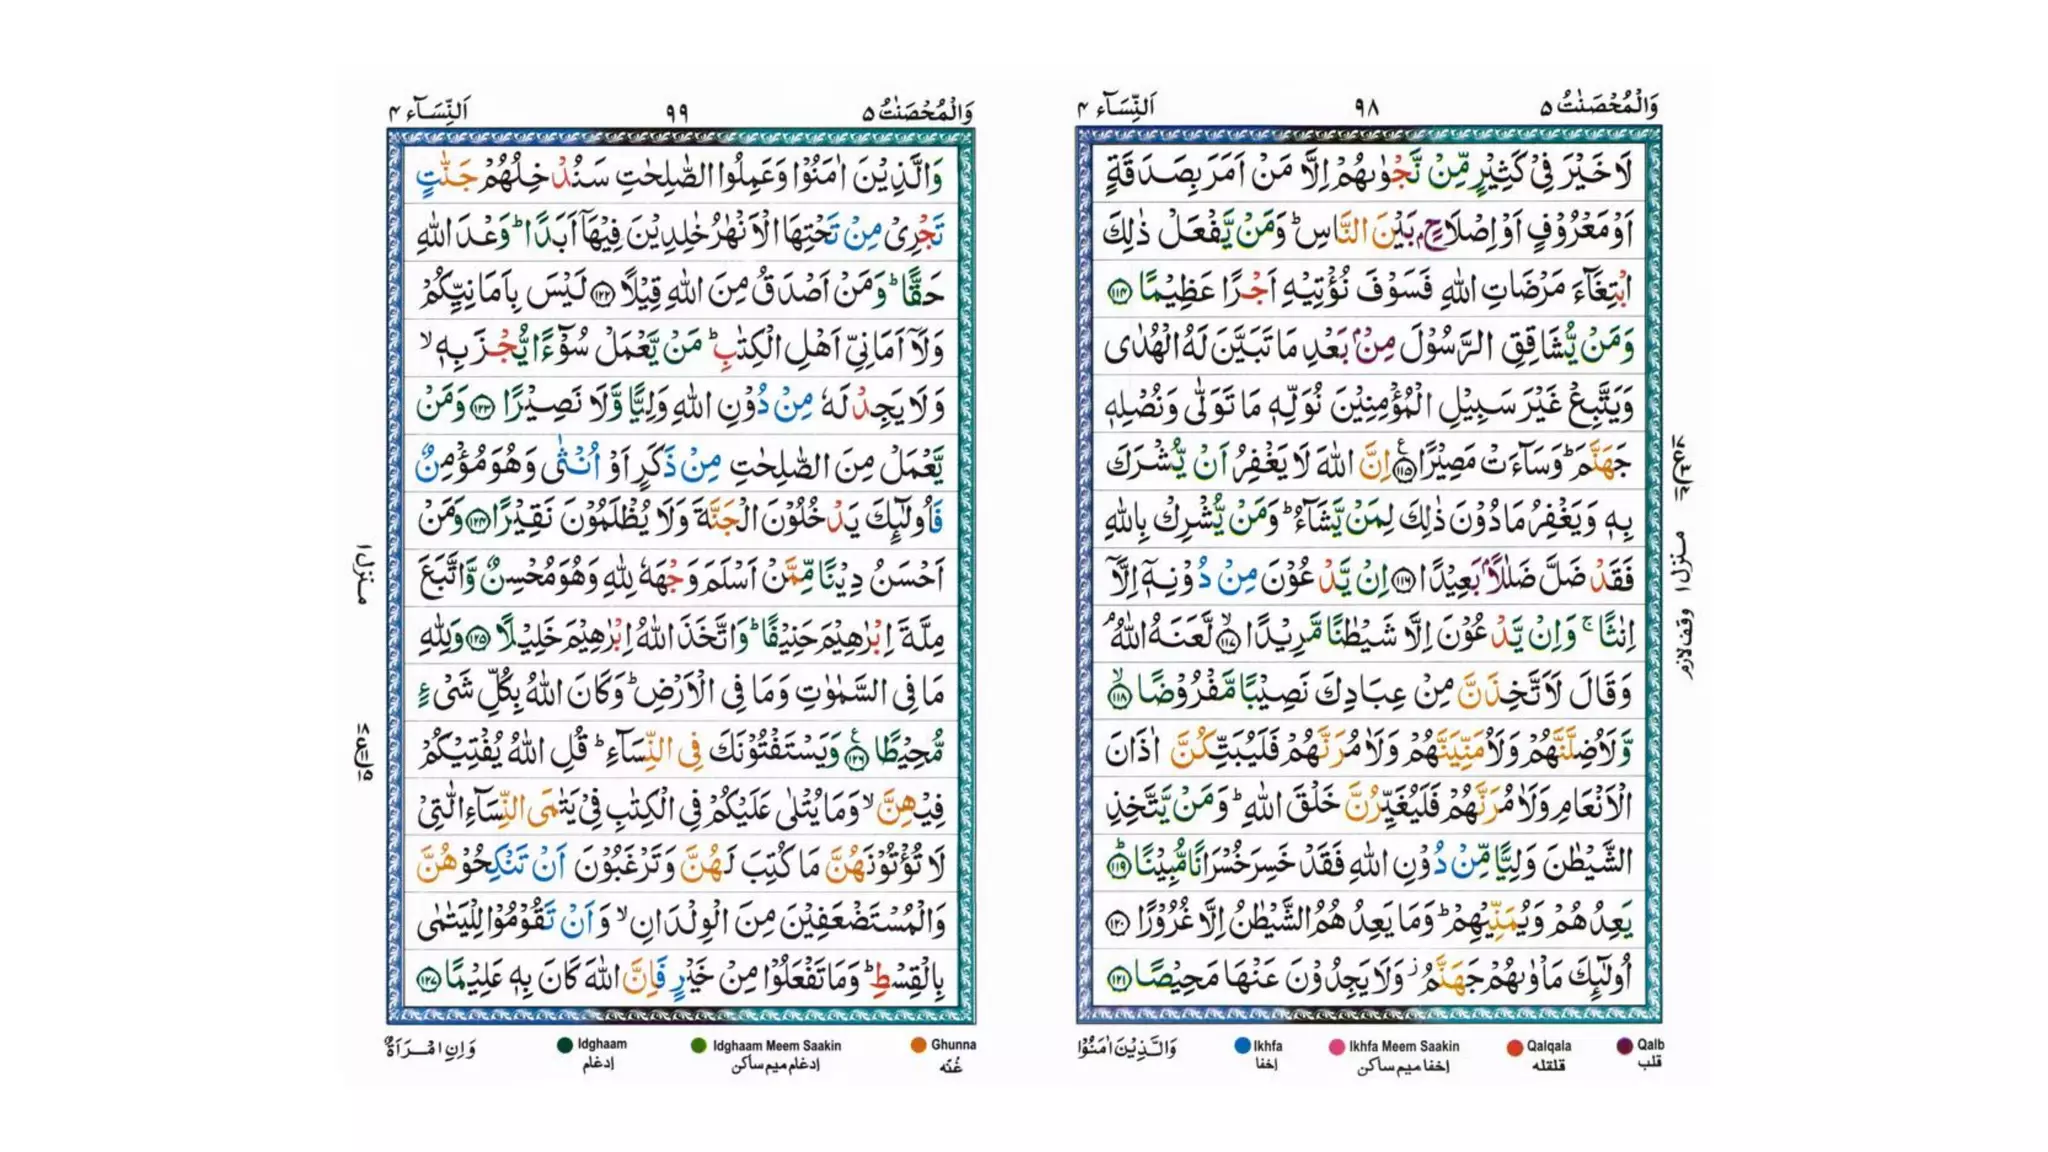 وَالْمُحْصَنٰتُ ٥
٩٨
اَلنِّسَآء ٤
لَا خَيْرَ فِيْ كَثِيْرٍ مِّنْ نَّجْوٰىهُمْ اِلَّا مَنْ اَمَرَ بِصَدَقَةٍ
اَوْ مَعْرُوْفٍ اَوْ اِصْلَاحٍۭ بَيْنَ النَّاسِ ؕ وَمَنْ يَّفْعَلْ ذٰلِكَ
ابْتِغَآءَ مَرْضَاتِ اللّٰهِ فَسَوْفَ نُؤْتِيْهِ اَجْرًا عَظِيْمًا ۝١١٤
وَمَنْ يُّشَاقِقِ الرَّسُوْلَ مِنْۢ بَعْدِ مَا تَبَيَّنَ لَهُ الْهُدٰى
وَيَتَّبِعْ غَيْرَ سَبِيْلِ الْمُؤْمِنِيْنَ نُوَلِّهٖ مَا تَوَلّٰى وَنُصْلِهٖ
جَهَنَّمَ ؕ وَسَآءَتْ مَصِيْرًا ۝١١٥ اِنَّ اللّٰهَ لَا يَغْفِرُ اَنْ يُّشْرَكَ
بِهٖ وَيَغْفِرُ مَا دُوْنَ ذٰلِكَ لِمَنْ يَّشَآءُ ؕ وَمَنْ يُّشْرِكْ بِاللّٰهِ
فَقَدْ ضَلَّ ضَلٰلًۢا بَعِيْدًا ۝١١٦ اِنْ يَّدْعُوْنَ مِنْ دُوْنِهٖٓ اِلَّآ
اِنٰثًا ۚ وَاِنْ يَّدْعُوْنَ اِلَّا شَيْطٰنًا مَّرِيْدًا ۝١١٧ۙ لَّعَنَهُ اللّٰهُ ۘ
وَقَالَ لَاَتَّخِذَنَّ مِنْ عِبَادِكَ نَصِيْبًا مَّفْرُوْضًا ۝١١٨ۙ
وَّلَاُضِلَّنَّهُمْ وَلَاُمَنِّيَنَّهُمْ وَلَاٰمُرَنَّهُمْ فَلَيُبَتِّكُنَّ اٰذَانَ
الْاَنْعَامِ وَلَاٰمُرَنَّهُمْ فَلَيُغَيِّرُنَّ خَلْقَ اللّٰهِ ؕ وَمَنْ يَّتَّخِذِ
الشَّيْطٰنَ وَلِيًّا مِّنْ دُوْنِ اللّٰهِ فَقَدْ خَسِرَ خُسْرَانًا مُّبِيْنًا ۝١١٩ؕ
يَعِدُهُمْ وَيُمَنِّيْهِمْ ؕ وَمَا يَعِدُهُمُ الشَّيْطٰنُ اِلَّا غُرُوْرًا ۝١٢٠
اُولٰٓئِكَ مَاْوٰىهُمْ جَهَنَّمُ ز وَلَا يَجِدُوْنَ عَنْهَا مَحِيْصًا ۝١٢١
منزل ١
وقف لازم
Qalb Qalqala Ikhfa Meem Saakin Ikhfa
قلب قلقله إخفا ميم ساكن إخفا
وَالَّذِيْنَ اٰمَنُوْا
وَالْمُحْصَنٰتُ ٥
٩٩
اَلنِّسَآء ٤
وَالَّذِيْنَ اٰمَنُوْا وَعَمِلُوا الصّٰلِحٰتِ سَنُدْخِلُهُمْ جَنّٰتٍ
تَجْرِيْ مِنْ تَحْتِهَا الْاَنْهٰرُ خٰلِدِيْنَ فِيْهَآ اَبَدًا ؕ وَعْدَ اللّٰهِ
حَقًّا ؕ وَمَنْ اَصْدَقُ مِنَ اللّٰهِ قِيْلًا ۝١٢٢ لَيْسَ بِاَمَانِيِّكُمْ
وَلَآ اَمَانِيِّ اَهْلِ الْكِتٰبِ ؕ مَنْ يَّعْمَلْ سُوْٓءًا يُّجْزَ بِهٖ ۙ
وَلَا يَجِدْ لَهٗ مِنْ دُوْنِ اللّٰهِ وَلِيًّا وَّلَا نَصِيْرًا ۝١٢٣ وَمَنْ
يَّعْمَلْ مِنَ الصّٰلِحٰتِ مِنْ ذَكَرٍ اَوْ اُنْثٰى وَهُوَ مُؤْمِنٌ
فَاُولٰٓئِكَ يَدْخُلُوْنَ الْجَنَّةَ وَلَا يُظْلَمُوْنَ نَقِيْرًا ۝١٢٤ وَمَنْ
اَحْسَنُ دِيْنًا مِّمَّنْ اَسْلَمَ وَجْهَهٗ لِلّٰهِ وَهُوَ مُحْسِنٌ وَّاتَّبَعَ
مِلَّةَ اِبْرٰهِيْمَ حَنِيْفًا ؕ وَاتَّخَذَ اللّٰهُ اِبْرٰهِيْمَ خَلِيْلًا ۝١٢٥ وَلِلّٰهِ
مَا فِي السَّمٰوٰتِ وَمَا فِي الْاَرْضِ ؕ وَكَانَ اللّٰهُ بِكُلِّ شَيْءٍ
مُّحِيْطًا ۝١٢٦ وَيَسْتَفْتُوْنَكَ فِي النِّسَآءِ ؕ قُلِ اللّٰهُ يُفْتِيْكُمْ
فِيْهِنَّ ۙ وَمَا يُتْلٰى عَلَيْكُمْ فِي الْكِتٰبِ فِيْ يَتٰمَى النِّسَآءِ الّٰتِيْ
لَا تُؤْتُوْنَهُنَّ مَا كُتِبَ لَهُنَّ وَتَرْغَبُوْنَ اَنْ تَنْكِحُوْهُنَّ
وَالْمُسْتَضْعَفِيْنَ مِنَ الْوِلْدَانِ ۙ وَاَنْ تَقُوْمُوْا لِلْيَتٰمٰى
بِالْقِسْطِ ؕ وَمَا تَفْعَلُوْا مِنْ خَيْرٍ فَاِنَّ اللّٰهَ كَانَ بِهٖ عَلِيْمًا ۝١٢٧
منزل ١
Ghunna Idghaam Meem Saakin Idghaam
غُنّه إدغام ميم ساكن إدغام
وَاِنِ امْرَاَةٌ